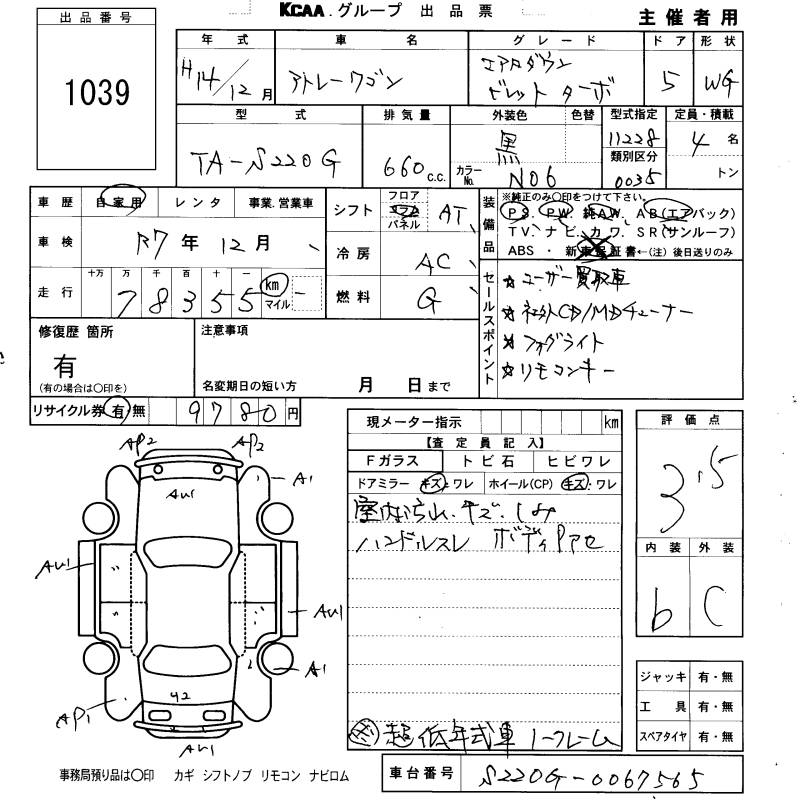 KCAA.グループ 出品票
主催者用
出品番号
1039
年式 車名 グレード ドア 形状
H14/12月 アトレーワゴン エアロダウン
ビレット ターボ 5 WG
型式 排気量 外装色 色替 型式指定 定員・積載
TA-S220G 660 c.c. 黒 11228 4 名
類別区分
カラーNo. N06 0035 トン
車歴 自家用 レンタ 事業.営業車
車検 R7年12月
十万 万 千 百 十 一
走行 78355 km マイル
シフト フロア コラム パネル AT
冷房 AC
燃料 G
装備品 ※純正のみ〇印をつけて下さい。
PS. PW. 純AW. AB(エアバック)
TV. ナビ. カワ. SR(サンルーフ)
ABS ・ 新車保証書←(注)後日送りのみ
セールスポイント
☆ユーザー買取車
☆社外CD/MDチューナー
☆フォグライト
☆リモコンキー
修復歴 箇所
有
(有の場合は〇印を)
注意事項
名変期日の短い方 月 日まで
リサイクル券 有 無 9780円
現メーター指示 km
【査定員記入】
Fガラス トビ石 ヒビワレ
ドアミラー キズ・ワレ ホイール(CP) キズ・ワレ
キズ・しみ
ハンドルスレ ボディ
超低年式車
評価点
3.5
内装 外装
b C
ジャッキ 有・無
工具 有・無
スペアタイヤ 有・無
AP2 AP2
A1
AU1
AU1
AU1
A1
42
AP1
AU1
事務局預り品は〇印 カギ シフトノブ リモコン ナビロム
車台番号 S220G-0067565